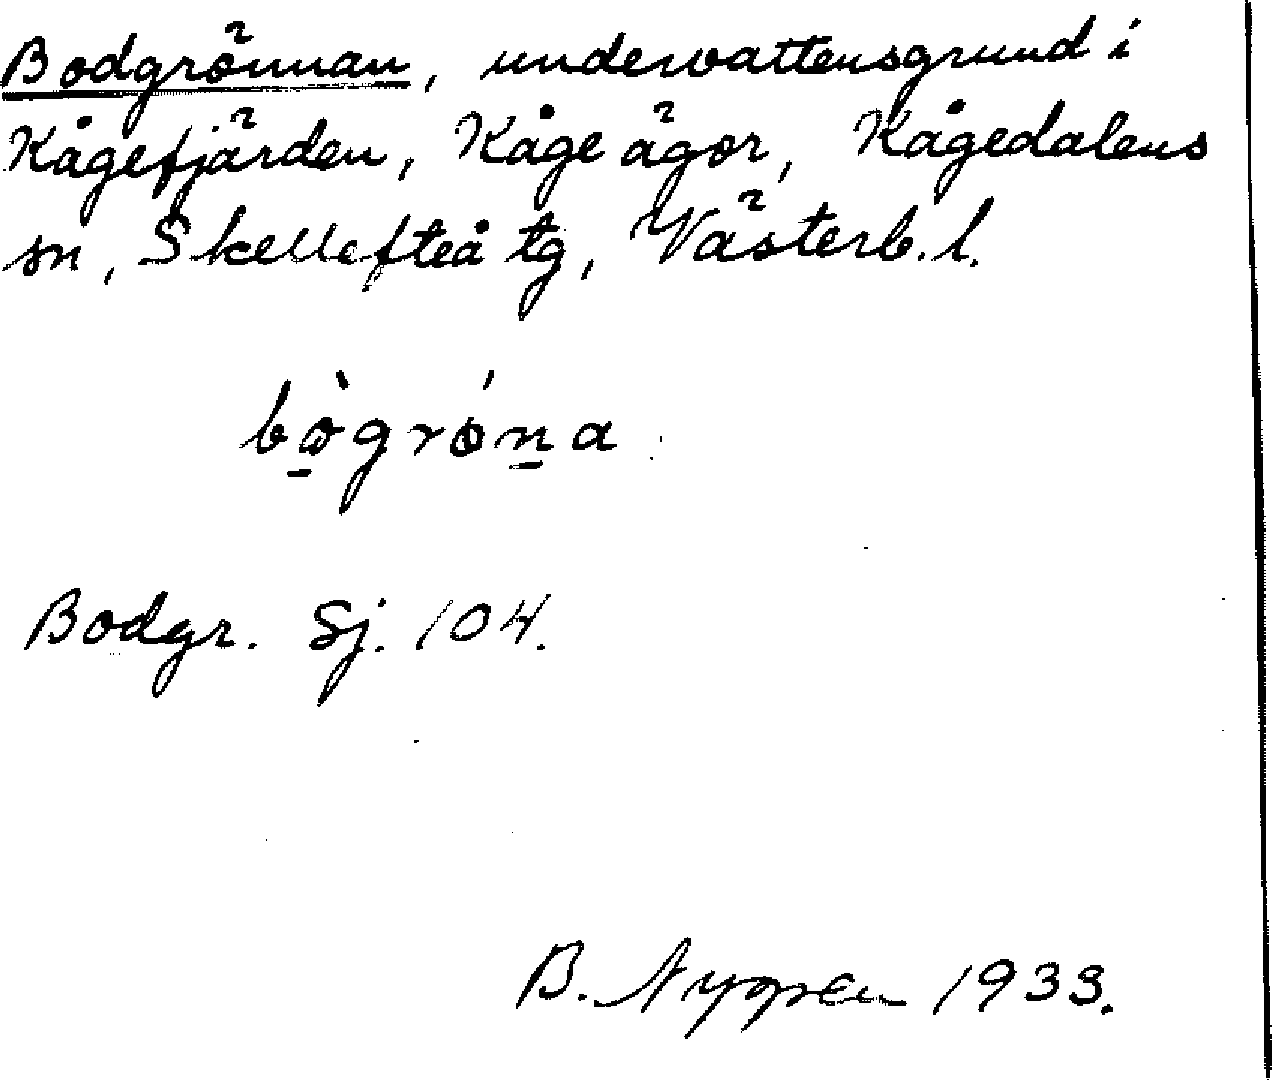 Bodgrönnan, undervattensgrund i
Kågefjärden, Kåge ägor, Kågedalens
sn, Skellefteå tg, Västerb. l.
bò̱gróṉa
Bodgr. Sj. 104.
B. Nygren 1933.